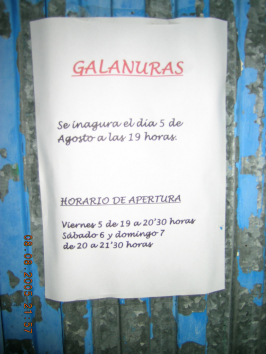 GALANURAS
Se inagura el día 5 de
Agosto a las 19 horas.
HORARIO DE APERTURA
Viernes 5 de 19 a 20'30 horas
Sábado 6 y domingo 7
de 20 a 21'30 horas